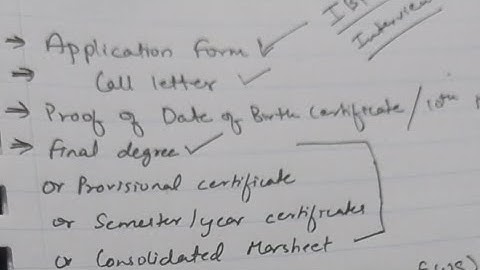 Interview
→ Application form ✓
→ Call letter ✓
→ Proof of Date of Birth Certificate / 10th
→ final degree ✓
or Provisional certificate
or Semester/year certificates
or Consolidated Marsheet